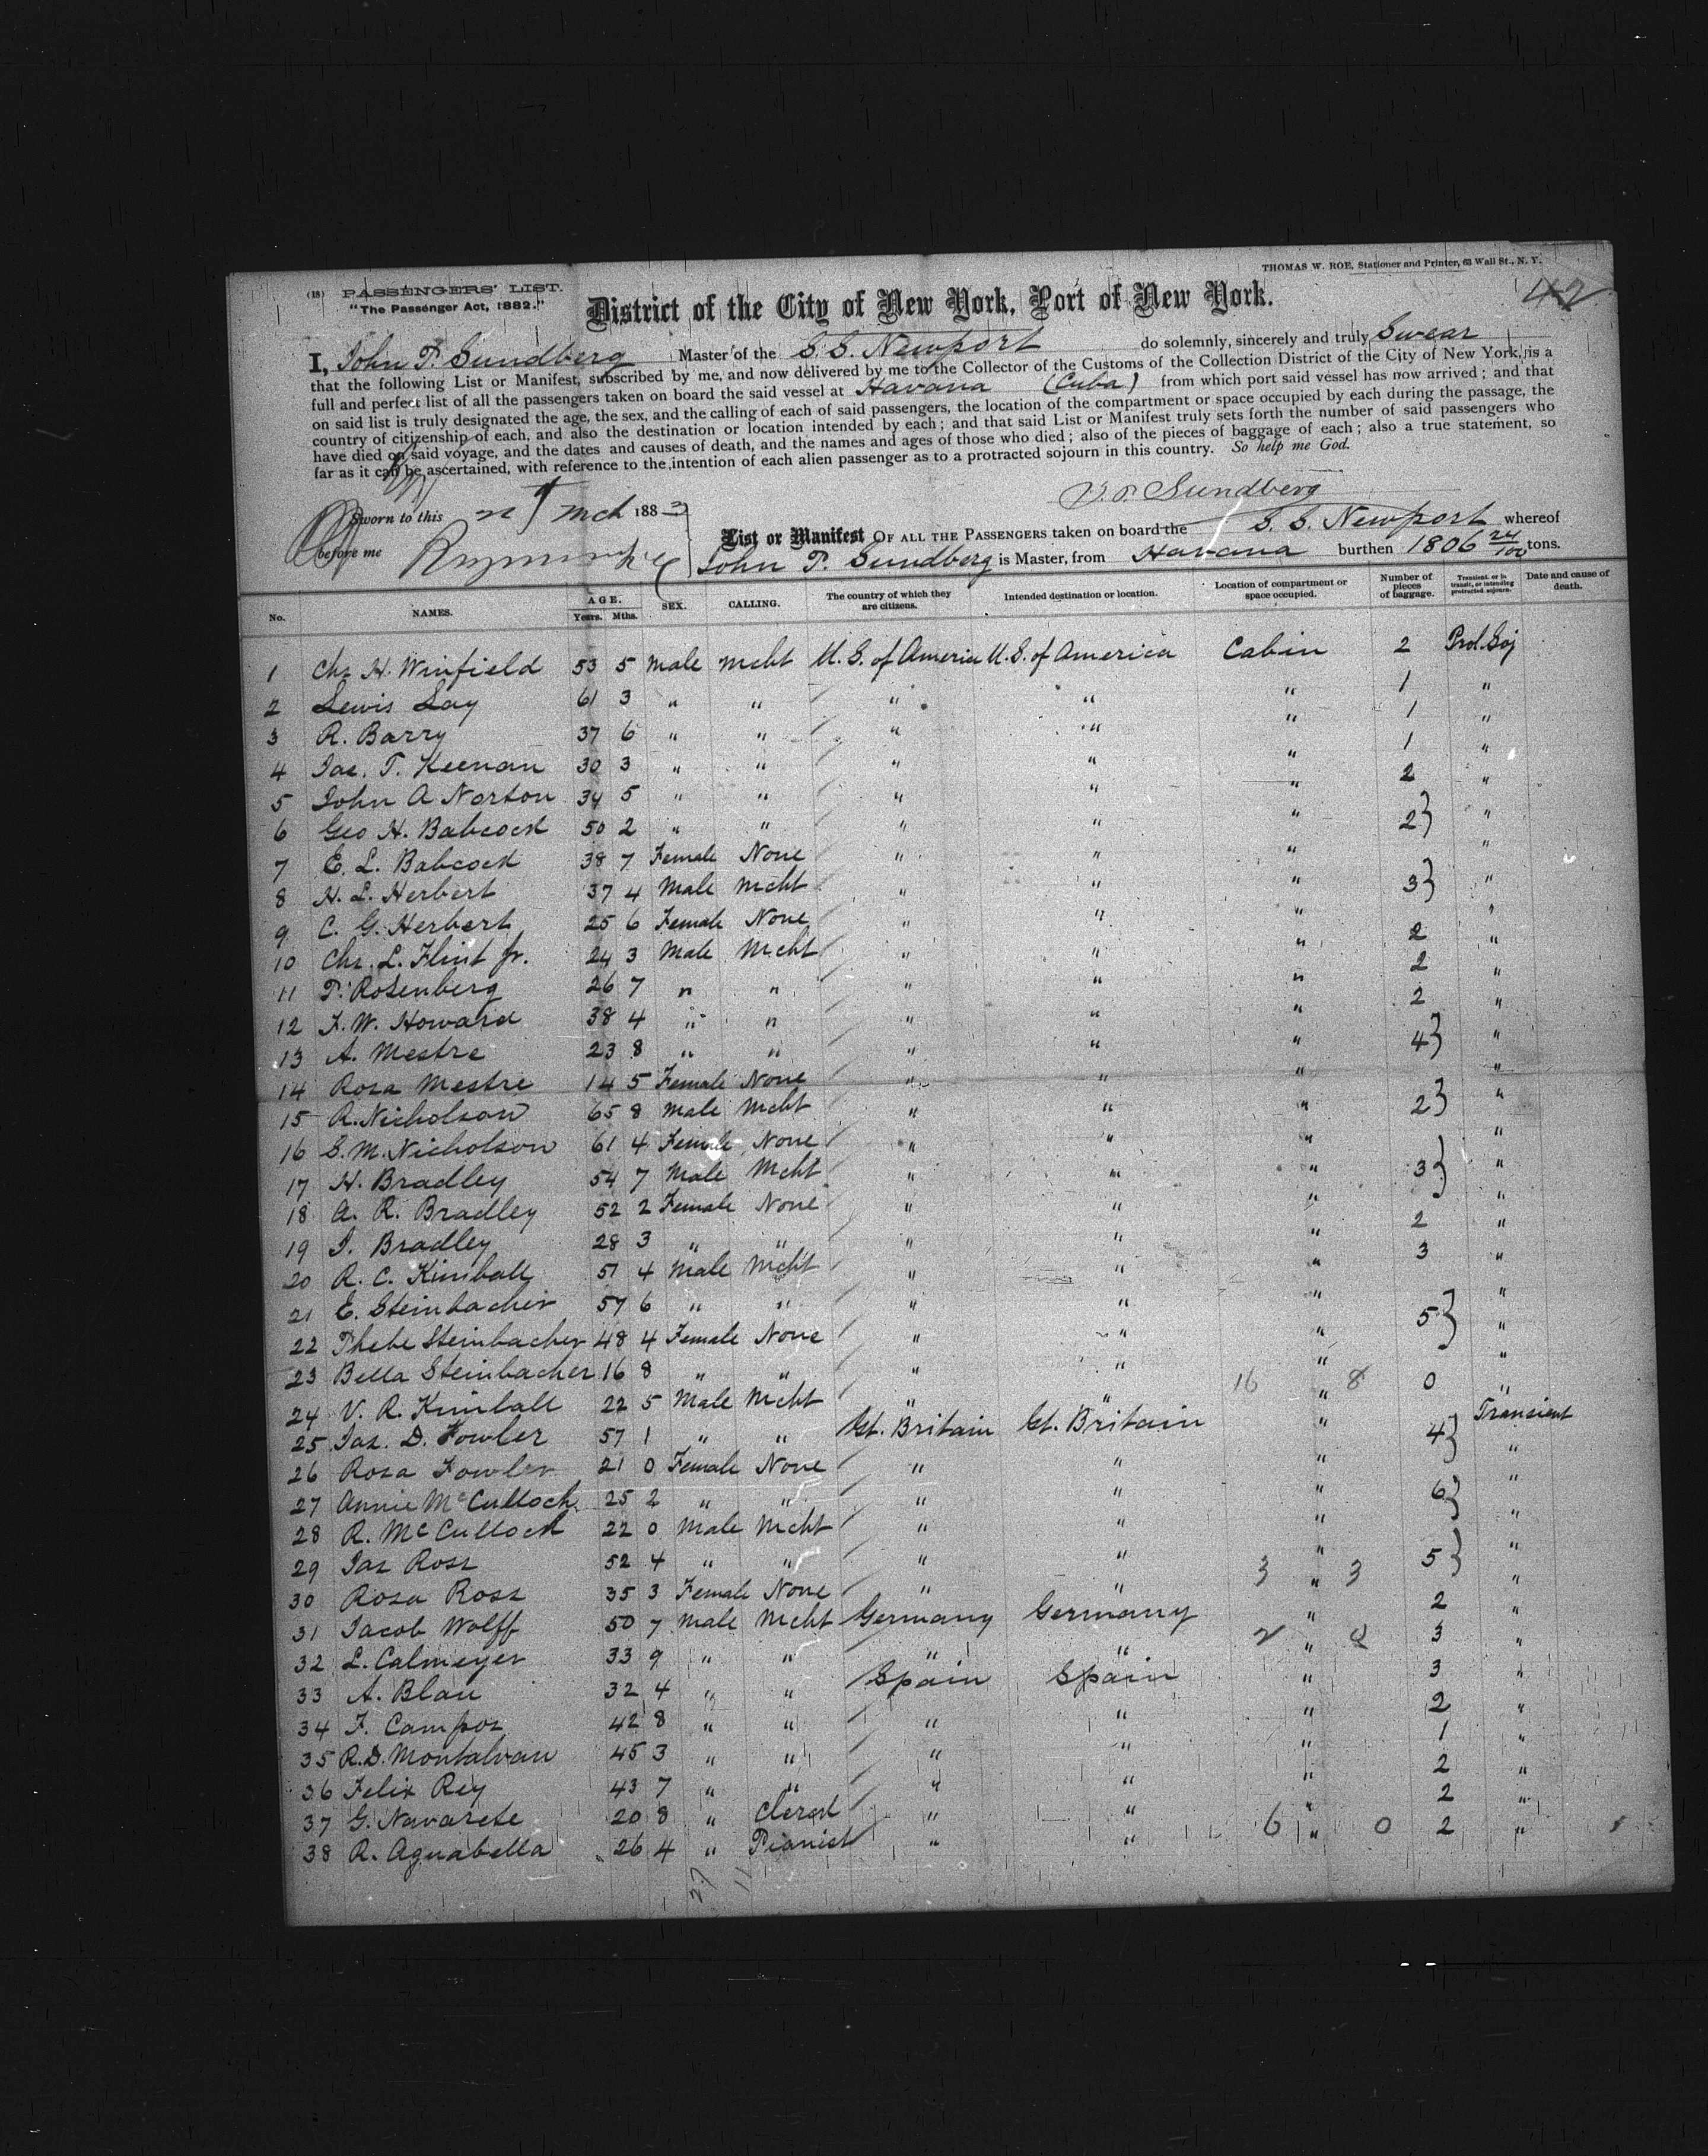 THOMAS W. ROE, Stationer and Printer, 63 Wall St., N. Y.
(18) PASSENGERS' LIST.
"The Passenger Act, 1882."
42
District of the City of New York, Port of New York.
I, John P. Sundberg Master of the S.S. Newport do solemnly, sincerely and truly Swear
that the following List or Manifest, subscribed by me, and now delivered by me to the Collector of the Customs of the Collection District of the City of New York, is a
full and perfect list of all the passengers taken on board the said vessel at Havana (Cuba) from which port said vessel has now arrived; and that
on said list is truly designated the age, the sex, and the calling of each of said passengers, the location of the compartment or space occupied by each during the passage, the
country of citizenship of each, and also the destination or location intended by each; and that said List or Manifest truly sets forth the number of said passengers who
have died on said voyage, and the dates and causes of death, and the names and ages of those who died; also of the pieces of baggage of each; also a true statement, so
far as it can be ascertained, with reference to the intention of each alien passenger as to a protracted sojourn in this country. So help me God.
J. P. Sundberg
Sworn to this Mch 1883
before me
List or Manifest OF ALL THE PASSENGERS taken on board the S. S. Newport whereof
John P. Sundberg is Master, from Havana burthen 1806 24/100 tons.
No. NAMES. AGE. Years. Mths. SEX. CALLING. The country of which they are citizens. Intended destination or location. Location of compartment or space occupied. Number of pieces of baggage. Transient, or in transit, or intending protracted sojourn. Date and cause of death.
1 Chs H. Winfield 53 5 Male Mcht U.S. of America U.S. of America Cabin 2 Prot. Soj
2 Lewis Lay 61 3 " " " " " 1 "
3 R. Barry 37 6 " " " " " 1 "
4 Jas. T. Keenan 30 3 " " " " " 1 "
5 John A Norton 34 5 " " " " " 2 "
6 Geo H. Babcock 50 2 " " " " " 2} "
7 E. L. Babcock 38 7 Female None " " " "
8 H. L. Herbert 37 4 Male Mcht " " " 3} "
9 C. G. Herbert 25 6 Female None " " " "
10 Chs. L. Flint Jr. 24 3 Male Mcht " " " 2 "
11 P. Rosenberg 26 7 " " " " " 2 "
12 F. W. Howard 38 4 " " " " " 2 "
13 A. Mestre 23 8 " " " " " 4} "
14 Rosa Mestre 14 5 Female None " " " "
15 R. Nicholson 65 8 Male Mcht " " " 2} "
16 S. M. Nicholson 61 4 Female None " " " "
17 H. Bradley 54 7 Male Mcht " " " 3} "
18 A. R. Bradley 52 2 Female None " " " "
19 J. Bradley 28 3 " " " " " 2 "
20 R. C. Kimball 51 4 Male Mcht " " " 3 "
21 E. Steinbacher 57 6 " " " " " 5} "
22 Phebe Steinbacher 48 4 Female None " " " "
23 Bella Steinbacher 16 8 " " " " " "
24 V. R. Kimball 22 5 Male Mcht " " 16 " 8 0 "
25 Jas. D. Fowler 57 1 " " Gt. Britain Gt. Britain " 4} Transient
26 Rosa Fowler 21 0 Female None " " " "
27 Annie McCulloch 25 2 " " " " " 6} "
28 R. McCulloch 22 0 Male Mcht " " " "
29 Jas Ross 52 4 " " " " " 5} "
30 Rosa Ross 35 3 Female None " " 3 " 3 "
31 Jacob Wolff 50 7 Male Mcht Germany Germany " 2 "
32 L. Calmeyer 33 9 " " " " 2 " 0 3 "
33 A. Blau 32 4 " " Spain Spain " 3 "
34 F. Campos 42 8 " " " " " 2 "
35 R.D. Montalvan 45 3 " " " " " 1 "
36 Felix Rey 43 7 " " " " " 2 "
37 G. Navarete 20 8 " Clerk " " " 2 "
38 R. Aguabella 26 4 " Pianist " " 6 " 0 2 "
27 11